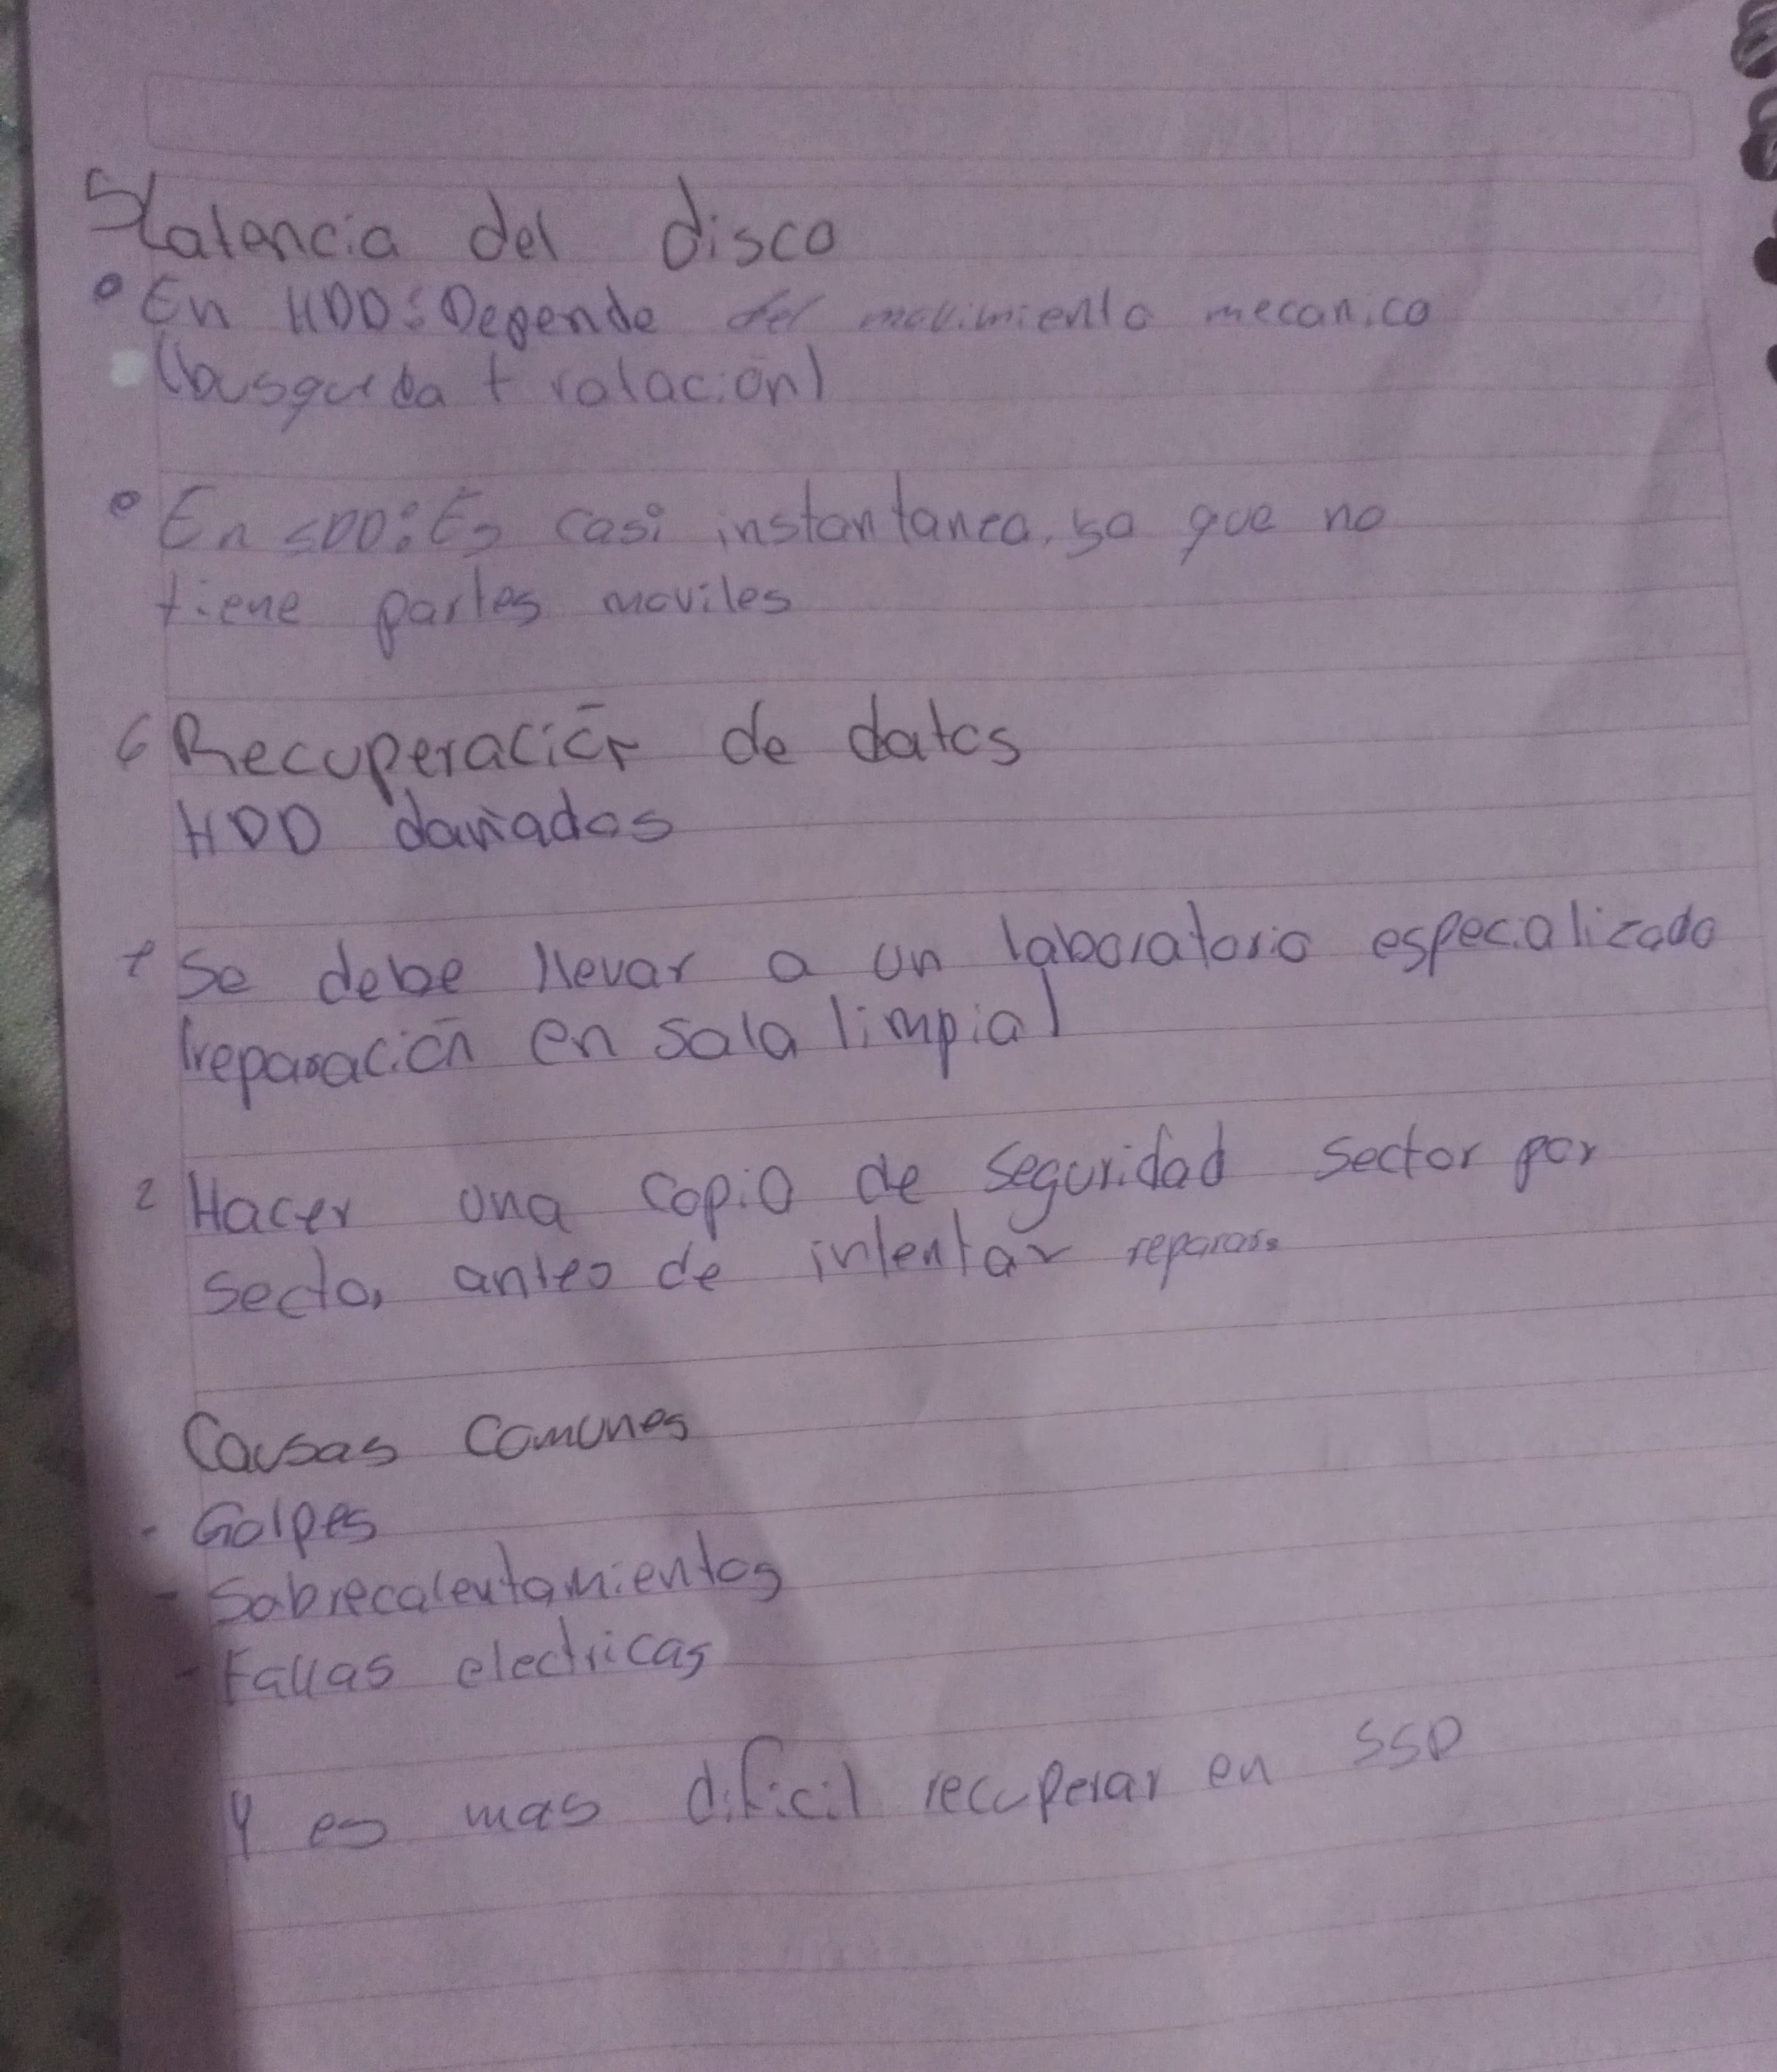 5 Latencia del disco
• En HDD: Depende del movimiento mecanico
(busqueda + rotación)
• En SDD: Es casi instantanea, ya que no
tiene partes moviles
6 Recuperación de datos
HDD dañados
1 Se debe llevar a un laboratorio especializado
(reparación en sala limpia)
2 Hacer una copia de seguridad sector por
sector antes de intentar reparar.
Causas comunes
- Golpes
- Sobrecalentamientos
- Fallas electricas
Y es mas dificil recuperar en SSD